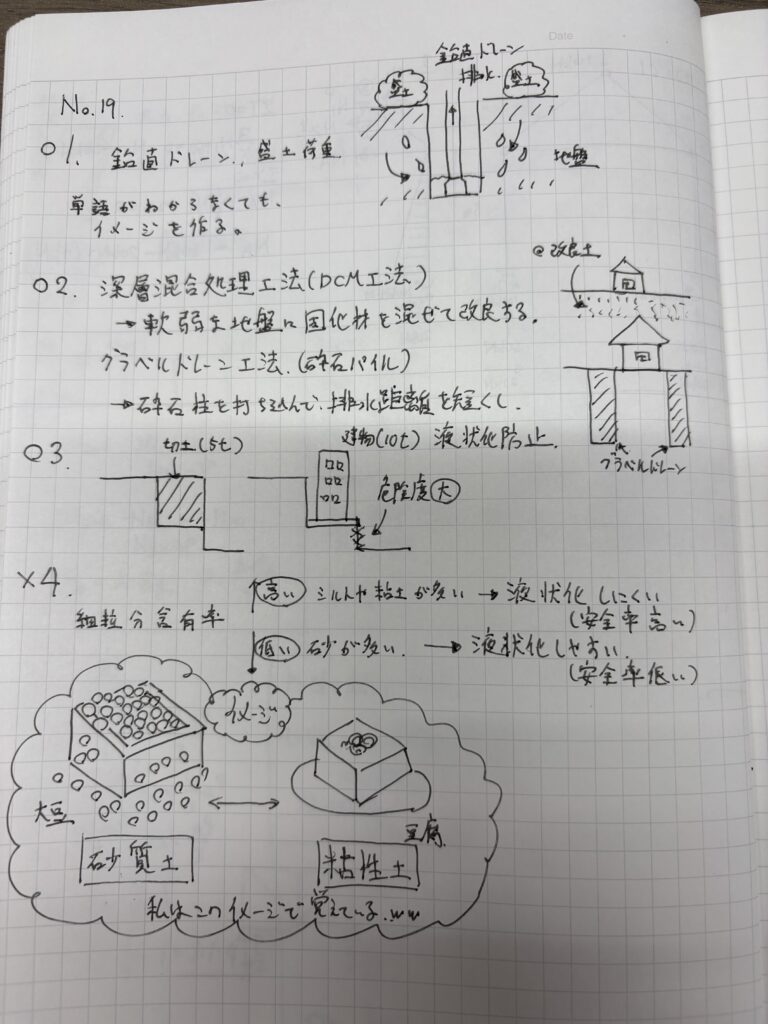 Date
No.19.
鉛直ドレーン
排水.
盛土
盛土
地盤
○1. 鉛直ドレーン, 盛土荷重
単語がわからなくても、
イメージを作る。
○2. 深層混合処理工法(DCM工法)
→軟弱な地盤に固化材を混ぜて改良する.
グラベルドレーン工法.(砕石パイル)
→砕石柱を打ち込んで、排水距離を短くし、
液状化防止.
改良土
グラベルドレーン
○3.
切土(5t)
建物(10t)
危険度大
×4.
細粒分含有率
高い シルトや粘土が多い → 液状化しにくい
(安全率高い)
低い 砂が多い. → 液状化しやすい.
(安全率低い)
イメージ
大豆
豆腐
砂質土
粘性土
私はこのイメージで覚えている.ww